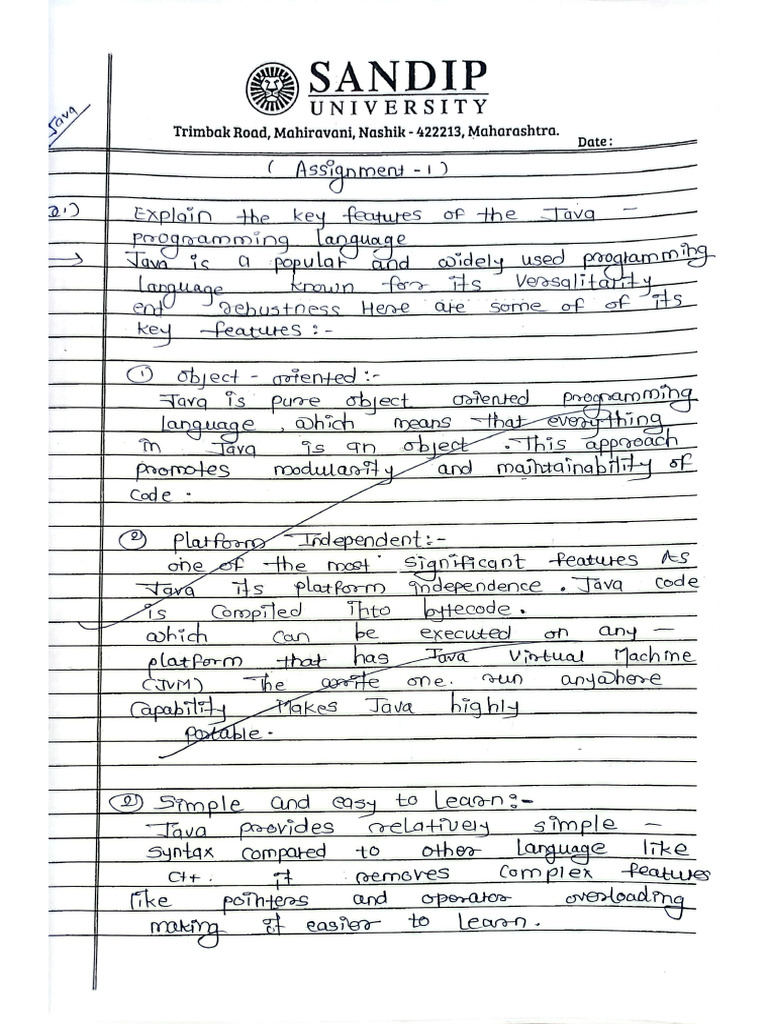 SANDIP
UNIVERSITY
Trimbak Road, Mahiravani, Nashik - 422213, Maharashtra.
Java
Date:
( Assignment - 1 )
Q.1) Explain the key features of the Java -
programming language
→ Java is a popular and widely used programming
language known for its versalitarity
ent rebustness Here are some of of its
key features :-
① Object - oriented :-
Java is pure object oriented programming
language, which means that everything
in Java is an object . This approach
promotes modularity and maintainability of
code .
② Platform Independent :-
one of the most significant features As
Java its platform independence . Java code
is compiled into bytecode .
which can be executed on any -
platform that has Java Virtual Machine
(JVM) The write one. run anywhere
capability Makes Java highly
portable .
Simple and easy to Learn :-
Java provides relatively simple -
syntax compared to other language like
C++. it removes complex features
like pointers and operator overloading
making it easier to learn .